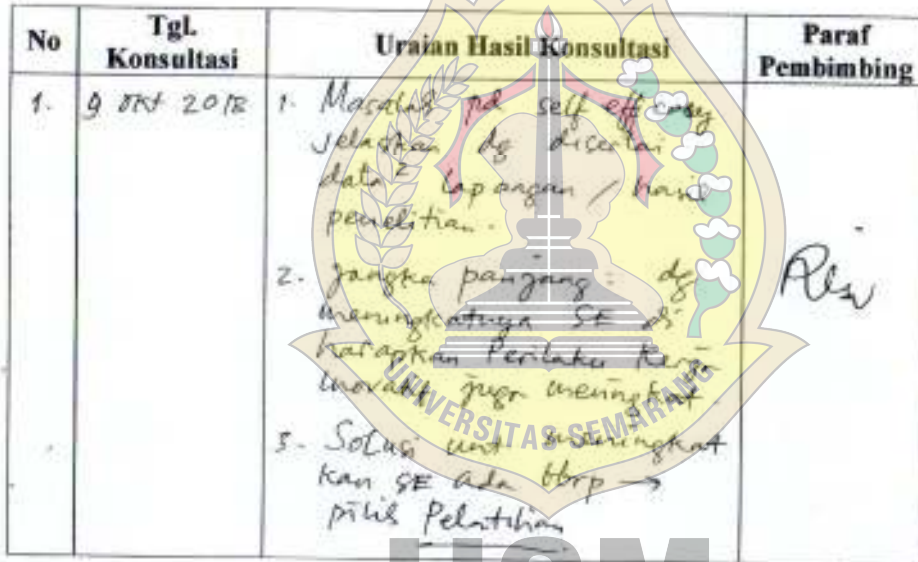 No Tgl. Konsultasi Uraian Hasil Konsultasi Paraf Pembimbing
1. 9 Okt 2018 1. Masalah pd self efficacy
jelaskan dg disertai
data² lapangan / hasil
penelitian.
2. Jangka panjang : dg
meningkatnya SE di
harapkan Perilaku Kerja
Inovatif juga meningkat.
3. Solusi unt meningkat
kan SE ada bbrp →
pilih Pelatihan
UNIVERSITAS SEMARANG
USM